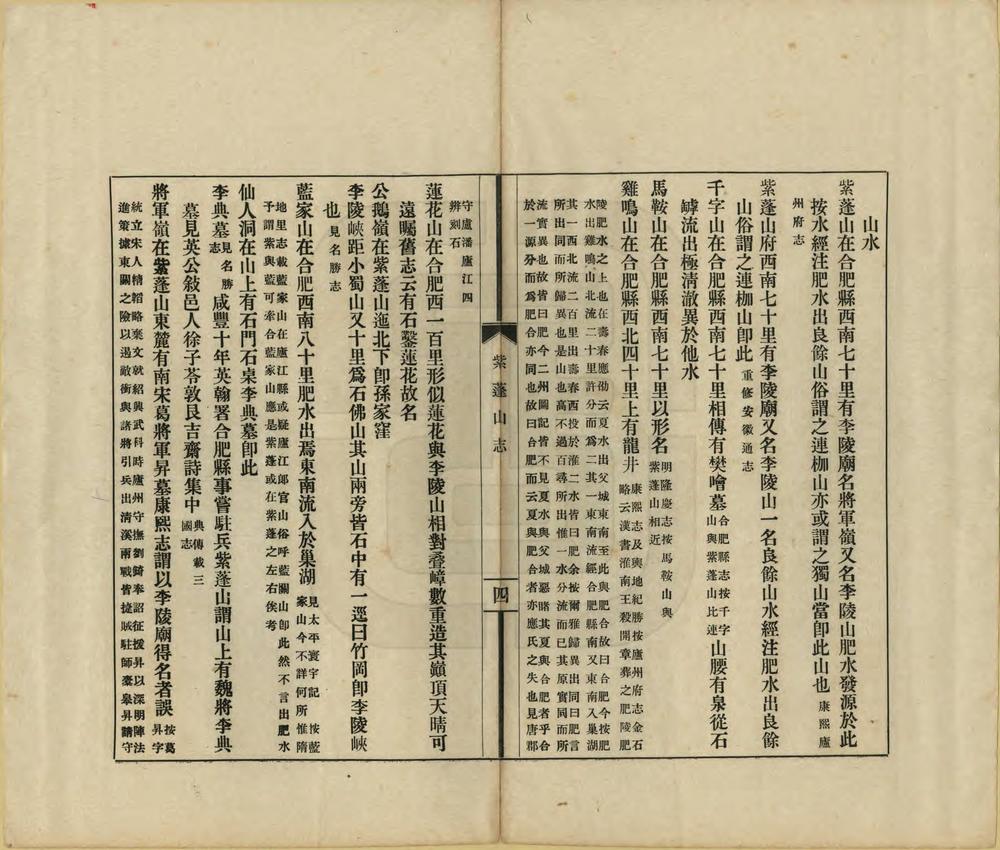 山水
紫蓬山在合肥縣西南七十里有李陵廟名將軍嶺又名李陵山肥水發源於此
按水經注肥水出良餘山俗謂之連枷山亦或謂之獨山當卽此山也康熙廬
州府志
紫蓬山府西南七十里有李陵廟又名李陵山一名良餘山水經注肥水出良餘
山俗謂之連枷山卽此重修安徽通志
千字山在合肥縣西南七十里相傳有樊噲墓合肥縣志按千字山與紫蓬山比連山腰有泉從石
罅流出極淸澈異於他水
馬鞍山在合肥縣西南七十里以形名明隆慶志按馬鞍山與紫蓬山相近
雞鳴山在合肥縣西北四十里上有龍井康熙志及輿地紀勝按廬州府志金石略云漢書淮南王殺開章葬之肥陵肥
陵肥水之上也在壽春應劭云夏水出父城東南至此與肥合故曰合肥今按肥
水出雞鳴山北流二十里許分而爲二其一東南流經合肥縣南又東南入巢湖
其一西北流二百里出壽春西投於淮二水皆曰肥余按爾雅歸異出同曰肥言
所出同而所歸異也是山也高不過百尋所出惟一水分流而已其原實同而所
流實異也故皆曰肥今二州圖記皆不見夏水與父城惡睹其夏與合肥者乎合
於一源分而爲肥合亦同也故曰合肥而云夏與肥合者亦應氏之失也見唐郡
守盧潘廬江四
辨刻石
蓮花山在合肥西一百里形似蓮花與李陵山相對疊嶂數重造其巔頂天晴可
遠矚舊志云有石鑿蓮花故名
公鵝嶺在紫蓬山迤北下卽孫家窪
李陵峽距小蜀山又十里爲石佛山其山兩旁皆石中有一逕曰竹岡卽李陵峽
也見名勝志
藍家山在合肥西南八十里肥水出焉東南流入於巢湖見太平寰宇記 按藍家山今不詳何所惟隋
地里志載藍家山在廬江縣或疑廬江郎官山俗呼藍關山卽此然不言出肥水
予謂紫與藍可牽合藍家山應是紫蓬或在紫蓬之左右俟考
仙人洞在山上有石門石桌李典墓卽此
李典墓見名勝志咸豐十年英翰署合肥縣事嘗駐兵紫蓬山謂山上有魏將李典
墓見英公敍邑人徐子苓敦艮吉齋詩集中典傳載三國志
將軍嶺在紫蓬山東麓有南宋葛將軍昇墓康熙志謂以李陵廟得名者誤按葛昇字
統立宋人精韜略棄文就紹興武科時廬州守撫劉錡奉詔征援昇以深明陣法
進策據東關之險以遏敵衝與諸將引兵出淸溪兩戰皆捷賊駐師橐皋昇請守
紫蓬山志
四